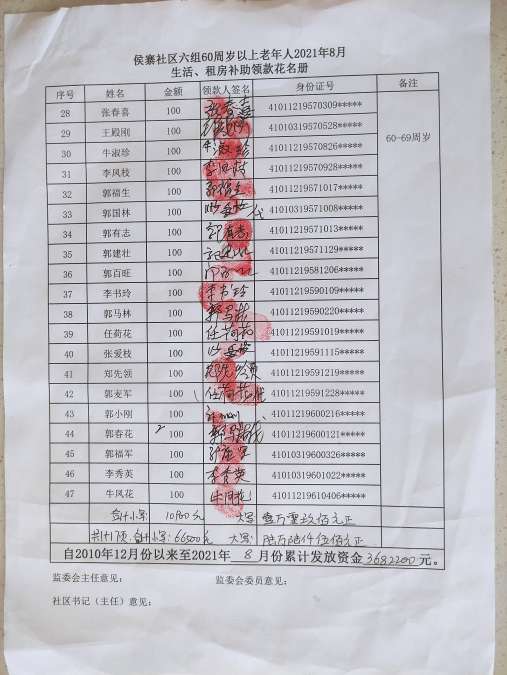 侯寨社区六组60周岁以上老年人2021年8月
生活、租房补助领款花名册
序号 姓名 金额 领款人签名 身份证号 备注
28 张春喜 100 张春喜 41011219570309*****
29 王殿刚 100 41010319570528***** 60-69周岁
30 牛淑珍 100 牛淑珍 41011219570826*****
31 李凤枝 100 李凤枝 41011219570928*****
32 郭福生 100 郭福生 41011219571017*****
33 郭国林 100 代 41010319571008*****
34 郭有志 100 郭有志 41011219571013*****
35 郭建壮 100 41011219571129*****
36 郭百旺 100 41011219581206*****
37 李书玲 100 李书玲 41011219590109*****
38 郭马林 100 郭马林 41011219590220*****
39 任荷花 100 任荷花 41011219591019*****
40 张爱枝 100 41011219591115*****
41 郑先领 100 41011219591219*****
42 郭麦军 100 任荷花代 41011219591228*****
43 郭小刚 100 41011219600216*****
44 郭春花 100 41011219600121*****
45 郭福军 100 41010319600326*****
46 李秀英 100 李秀英 41010319601022*****
47 牛凤花 100 牛凤花 41011219610406*****
合计小写: 10900元 大写: 壹万零玖佰元正
共计17项,合计小写: 66500元 大写: 陆万陆仟伍佰元正
自2010年12月份以来至2021年 8 月份累计发放资金3682200元。
监委会主任意见: 监委会委员意见:
社区书记(主任)意见: